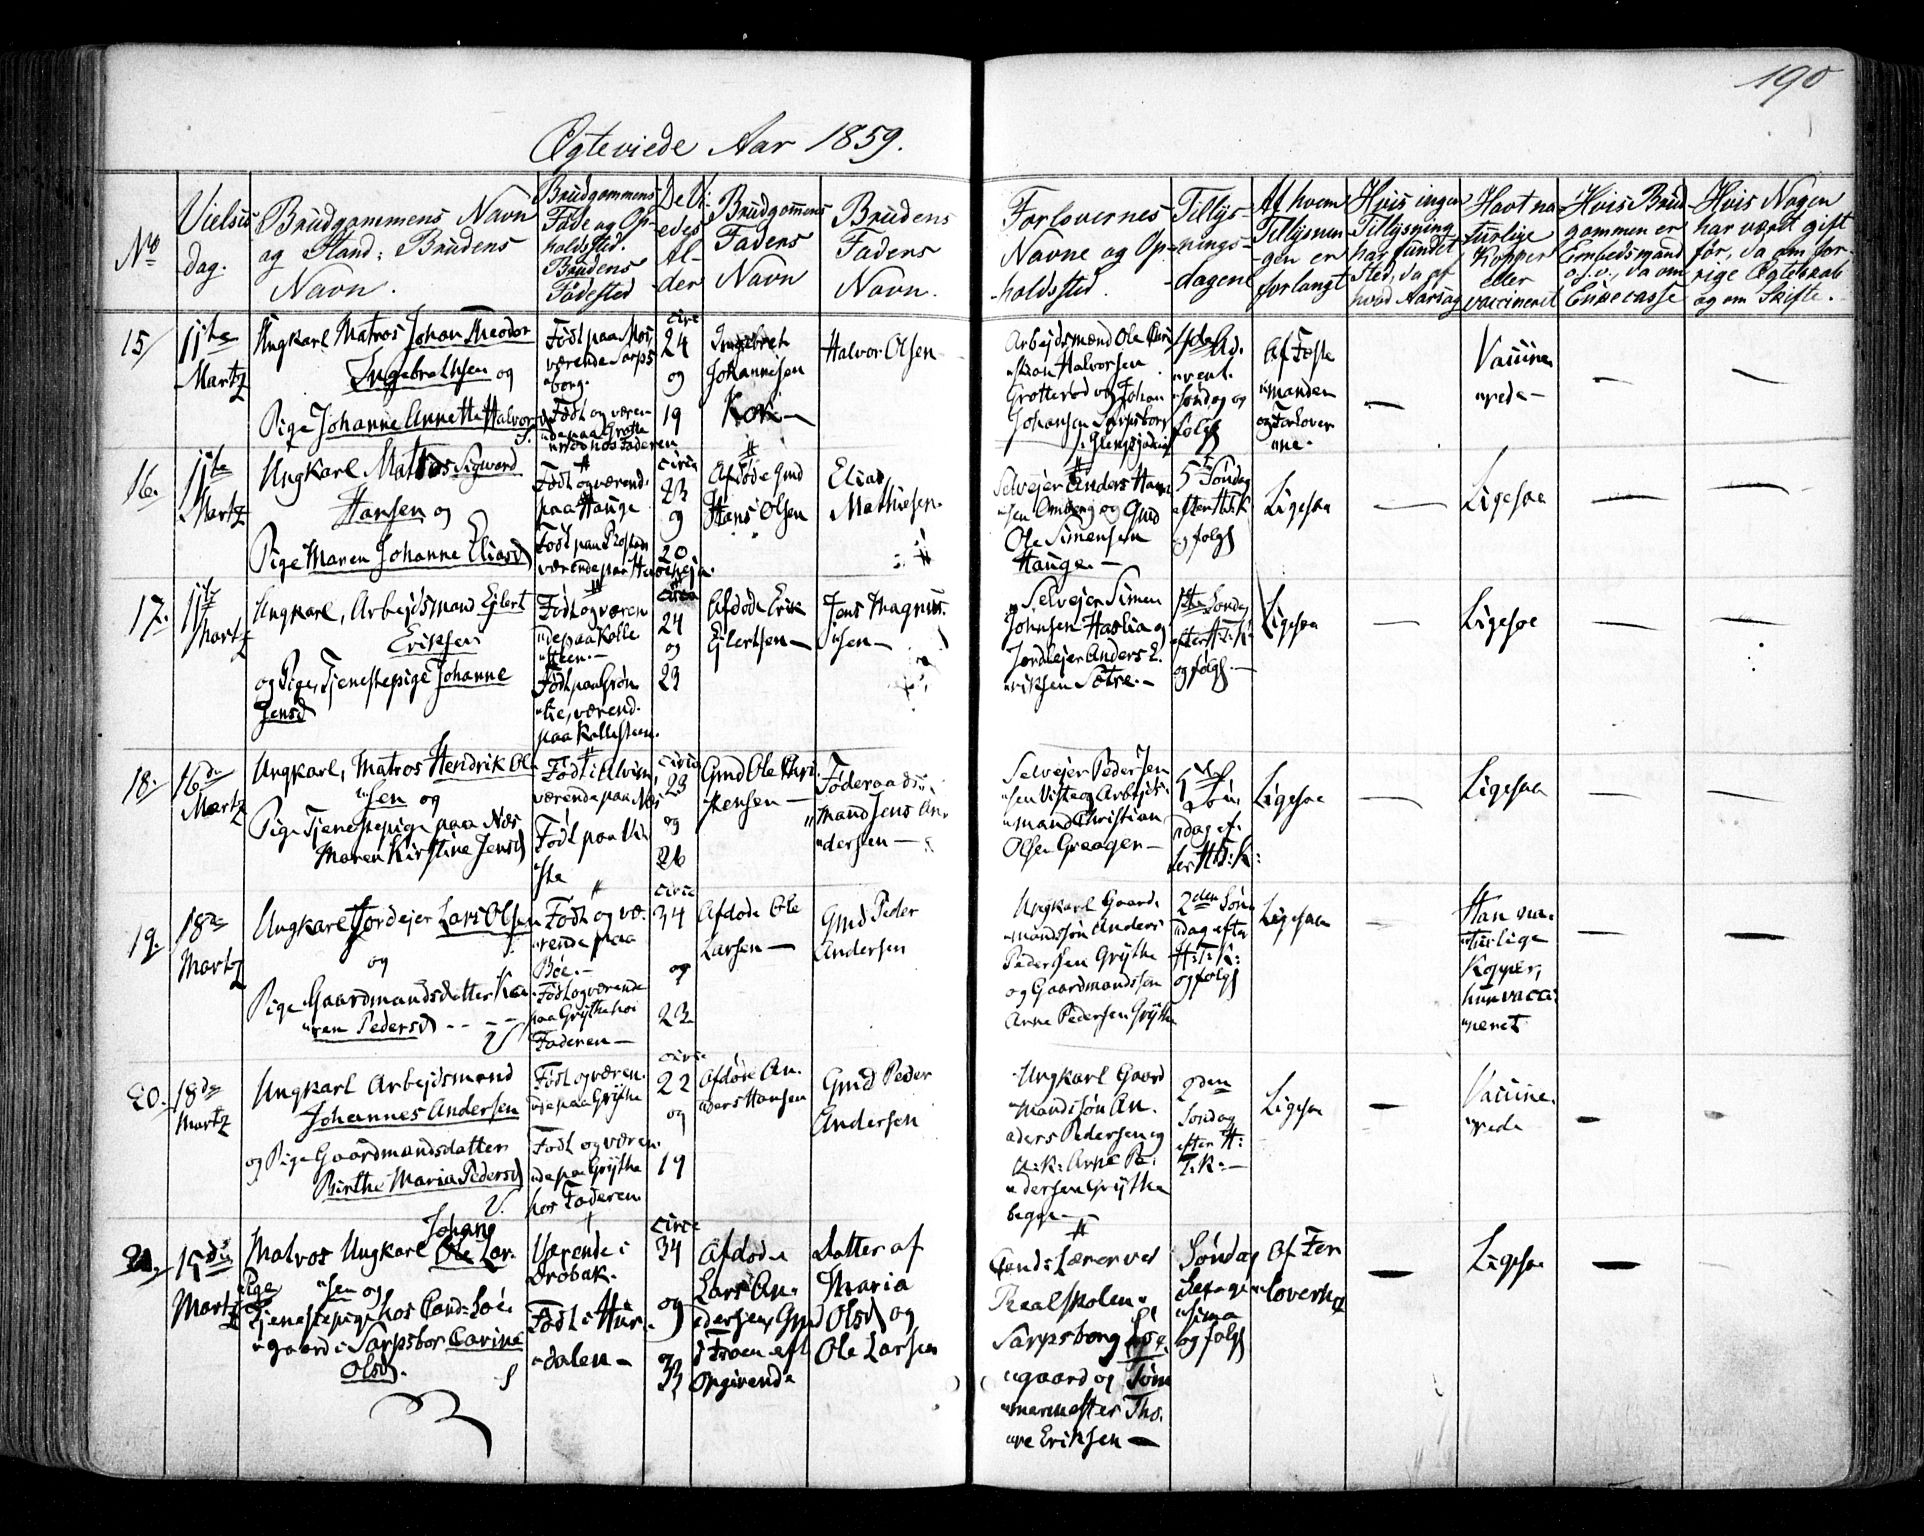 190
Ægteviede Aar 1859.
No
Vielses
dag.
Brudgommens Navn
og Stand; Brudens
Navn.
Brudgommens
Føde og Op-
holdsted.
Brudens
Fødested
De Vi-
edes
Al-
der
Brudgommens
Faders
Navn
Brudens
Faders
Navn.
Forlovernes
Navne og Op-
holdssted.
Tillys-
nings-
dagene
Af hvem
Tillysnin
gen er
forlangt
Hvis ingen
Tillysning
har fundet
Sted, da af
hvad Aarsag
Havt na
turlige
Kopper
eller
vaccineret
Hvis Brud
gommen er
Embedsmand
o.s.v., da om
Enkecasse
Hvis Nogen
har været gift
før, da om for-
rige Ægteskab
og om Skifte.
15/
11te
Martz
Ungkarl Matros Johan Theodor
Ingebrethsen og
Pige Johanne Annette Halvorsd
Født paa Mos,
værende Sarps
borg.
Født og væren
de paa Grotte
rød hos Faderen
circa
24
og
19
Ingebret
Johannesen
Kok
Halvor Olsen
Arbejdsmænd Ole Chri
stian Halvorsen
Grotterød og Johan
Johansen Sarpsborg
4de Ad.
vent.
Søndag og
følg
Af Fæste
manden
og Forlover
ne.
Vaccine
rede
16.
11te
Martz
Ungkarl Matros Sigvard
Hansen og
Pige Maren Johanne Eliasd
Født og værend.
paa Hauge
circa
23
og
20
Afdøde Gmd
Hans Olsen
Elias
Mathiesen.
Selvejer Anders Han
sen Omberg og Gmd
Ole Simensen
Hauge.
5te Søndag
efter H.3.K
og følg
Ligesaa
Ligesaa
17.
11te
Martz
Ungkarl, Arbejdsmand Ejlert
Eriksen
og Pige, Tjenestepige Johanne
Jensd
Født og væren
de paa Kolle
steen.
Født paa Grøn
lie, værend.
paa Kollesteen.
circa
24
og
23
Afdøde Erik
Ejlertsen
Jens Magnus
sen
Selvejer Simen
Johnsen Haslia og
Jordejer Anders E.
riksen Sætre.
1ste Søndag
efter H.T.K.
og følg.
Ligesaa
Ligesaa
18.
16de
Martz
Ungkarl, Matros Hendrik Ol
sen og
Pige Tjenestepige paa Næs
Maren Kirstine Jensd
værende paa Næs
Født paa Vi
ste
circa
23
og
26
Gmd Ole Chri
stensen
Føderaads
mand Jens An.
dersen
Selvejer Peder Jen
sen Viste og Arbejds
mand Christian
Olsen Graager
5te
Søn
dag ef.
ter H.3.K.
Ligesaa
Ligesaa
19.
18de
Martz
Ungkarl Jordejer Lars Olsen
og
Pige Gaardmandsdatter Ka
ren Pedersd
Født og væ.
rende paa
Bøe.
Født og værende
paa Grytke hos
Faderen
circa
34
og
23
Afdøde Ole
Larsen
Gmd Peder
Andersen
Ungkarl Gaard.
mandssøn Anders
Pedersen Grytke
og Gaardmandssøn
Arne Pedersen Grytke
2den Søn
dag efter
H.T.K.
og følg
Ligesaa
Han na.
turlige
Kopper,
hun vacci
neret
20.
18de
Martz
Ungkarl Arbejdsmand
Johannes Andersen
og Pige Gaardmandsdatter
Birthe Maria Pedersd
Født og væren.
de paa Grytke
Født og væren.
de paa Grytke
hos Faderen.
circa
22
og
19
Afdøde An.
ders Hansen
Gmd Peder
Andersen
Ungkarl Gaard
mandssøn An.
ders Pedersen og
U.K. Arne Pe.
dersen Grytke
begge
2den
Søndag
efter H.
T.K.
Ligesaa
Vaccine.
rede
21.
15de
Martz
Johann
Matros Ungkarl Ole Lar.
sen og
Pige
Tjenestepige hos Cand. Løe.
gaard i Sarpsbor Carine
Olsd.
Værende i
Drøbak.
Født i Hur.
dalen
circa
34
og
33
Afdøde
Lars An.
dersen, Gmd
Opgivende
Datter af
Maria
Olsd og
Ole Larsen
Cand. Lærer ved
Realskolen
Sarpsborg Løe.
gaard og Tøm
mermester Tho.
re Eriksen
Søndag
Sexage
sima
og følg
Af For
loverne
Ligesaa